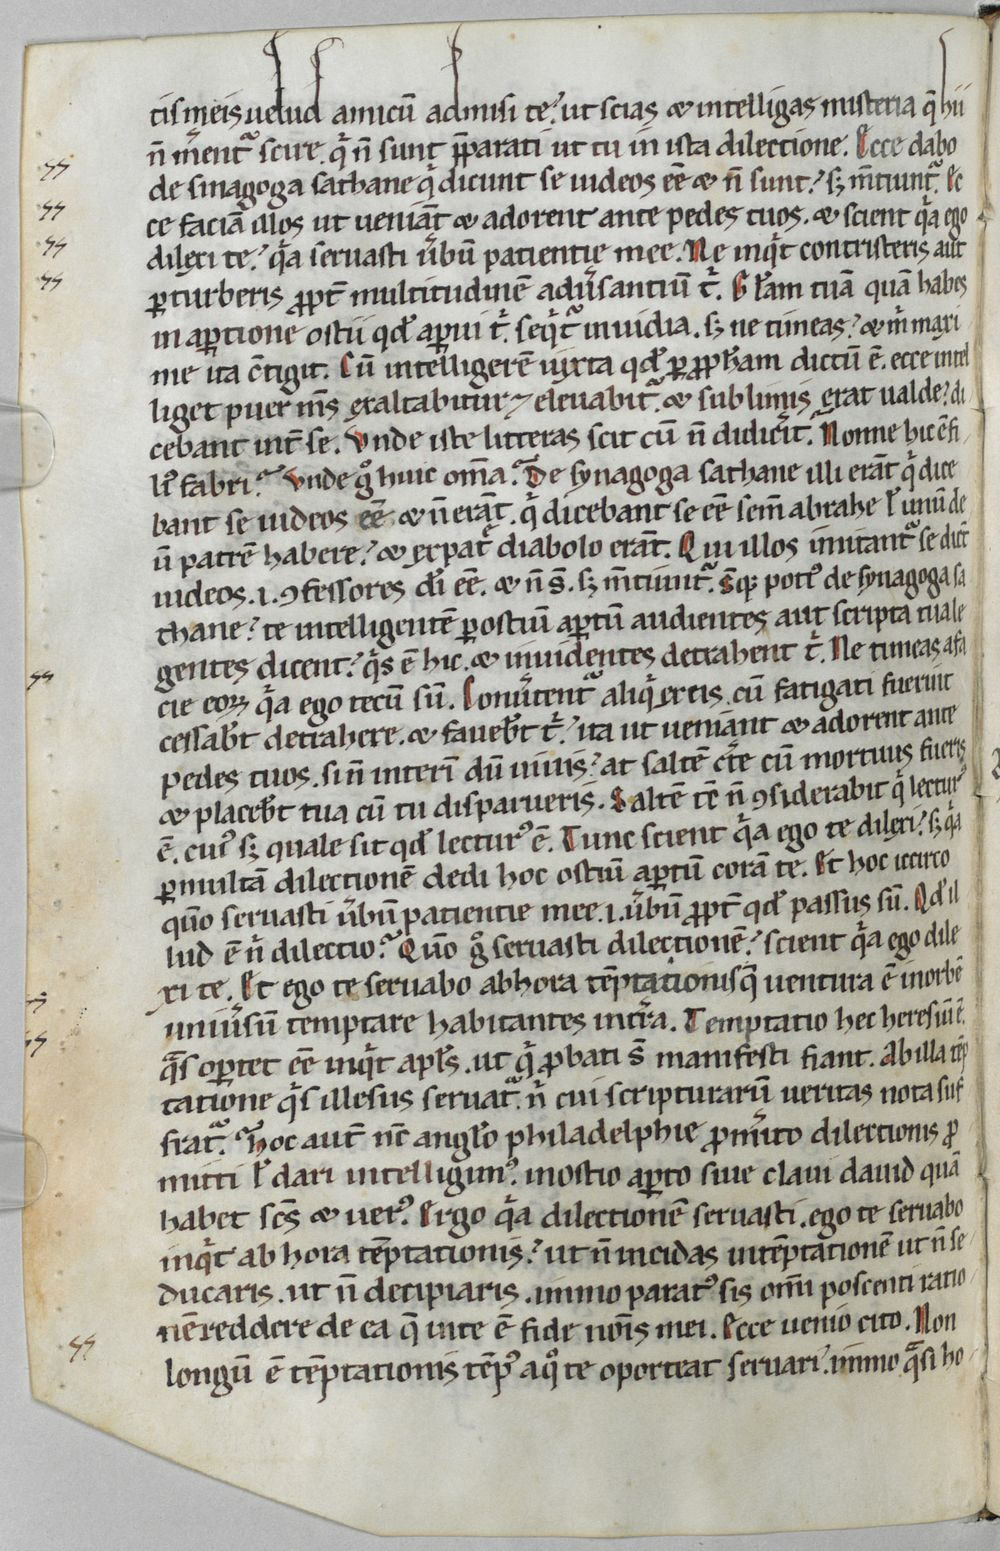 tis meis uelud amicū admisi te? ut scias & intelligas misteria q̄ hii
n̄ m̄ent᷑ scire. q̓ n̄ sunt p̄parati ut tu in ista dilectione. Ecce dabo
de sinagoga sathane q̓ dicunt se iudeos eē & n̄ sunt? sꝫ m̄tiunt᷑. Ec
ce faciā illos ut ueniāt & adorent ante pedes tuos. & scient q̓a ego
dilexi te? q̓a seruasti ūbū patientie mee. Ne inq̓t contristeris aut
ꝑturberis ꝓpt̄ multitudinē adūsantiū t̓. Gr̄am tuā quā habes
in aꝑtione ostii qd̄ aꝑui t̓. seq̓t᷑ inuidia. sꝫ ne timeas? & m̓ maxi
me ita c̄tigit. Cū intelligerē iuxta qd̄ ꝑ ꝓph̄am dictū ē. ecce intel
liget puer m̄s exaltabitur ⁊ eleuabit᷑. & sublimis erat ualde? di
cebant int̄ se. Vnde iste litteras scit cū n̄ didic̄it. Nonne hic ē fi
li᷒ fabri? Vnde g̊ huic om̄a? De synagoga sathane illi erāt q̓ dice
bant se iudeos eē & n̄ erāt. q̓ dicebant se eē sem̄ abrahe ł unū de
ū patrē habere? & ex pat̓ diabolo erāt. Qui illos imitant᷑ se dic̄t
iudeos .i. ꝯfessores dī eē. & n̄ s̄. sꝫ m̄tiunt᷑. S̄qꝫ pot᷒ de synagoga sa
thane? te intelligentē ꝑ ostiū aꝑtū audientes aut scripta tua le
gentes dicent? q̓s ē hic. & inuidentes detrahent t̓. Ne timeas a fa
cie eoꝝ q̓a ego tecū sū. Conūtent᷑ aliq̓ ex eis. cū fatigati fuerint
cessab̄t detrahere. & faueb̄t t̓? ita ut ueniant & adorent ante
pedes tuos. si n̄ interī dū uiuis? at saltē c̄te cū mortuus fueris
& placeb̄t tua cū tu disparueris. Saltē tē n̄ ꝯsiderabit q̓ lectur᷒
ē. cui᷒ sꝫ quale sit qd̄ lectur᷒ ē. Tunc scient q̓a ego te dilexi? sꝫ q̓a
ꝑ multā dilectionē dedi hoc ostiū aꝑtū corā te. Et hoc iccirco
qm̄o seruasti ūbū patientie mee .i. ūbū ꝓpt̄ qd̄ passus sū. Qd̄ il
lud ē n̓ dilectio? Qūo g̊ seruasti dilectionē? scient q̓a ego dile
xi te. Et ego te seruabo ab hora tēptationis q̄ uentura ē in orbē
uniūsū temptare habitantes in t̓ra. Temptatio hec heresiū ē.
q̄s oꝑtet eē inq̓t apl̄s. ut q̓ ꝓbati s̄ manifesti fiant. Ab illa tēp
tatione q̓s illesus seruat᷑. n̓ cui scripturarū ueritas nota suf
fragat᷑? Hoc aut̄ nc̄ angl̄o philadelphie ꝓ m̄ito dilectionis ꝓ
mitti ł dari intelligim᷒. in ostio aꝑto siue claui dauid quā
habet sc̄s & uer᷒. Ergo q̓a dilectionē seruasti. ego te seruabo
inq̓t ab hora tēptationis? ut n̄ incidas in tēptationē ut n̄ se
ducaris. ut n̄ decipiaris. immo parat᷒ sis om̄i poscenti ratio
nē reddere de ea q̄ in te ē fide nōis mei. Ecce uenio cito. Non
longū ē tēptationis tēp᷒ a q̊ te oporteat seruari. immo q̄si ho